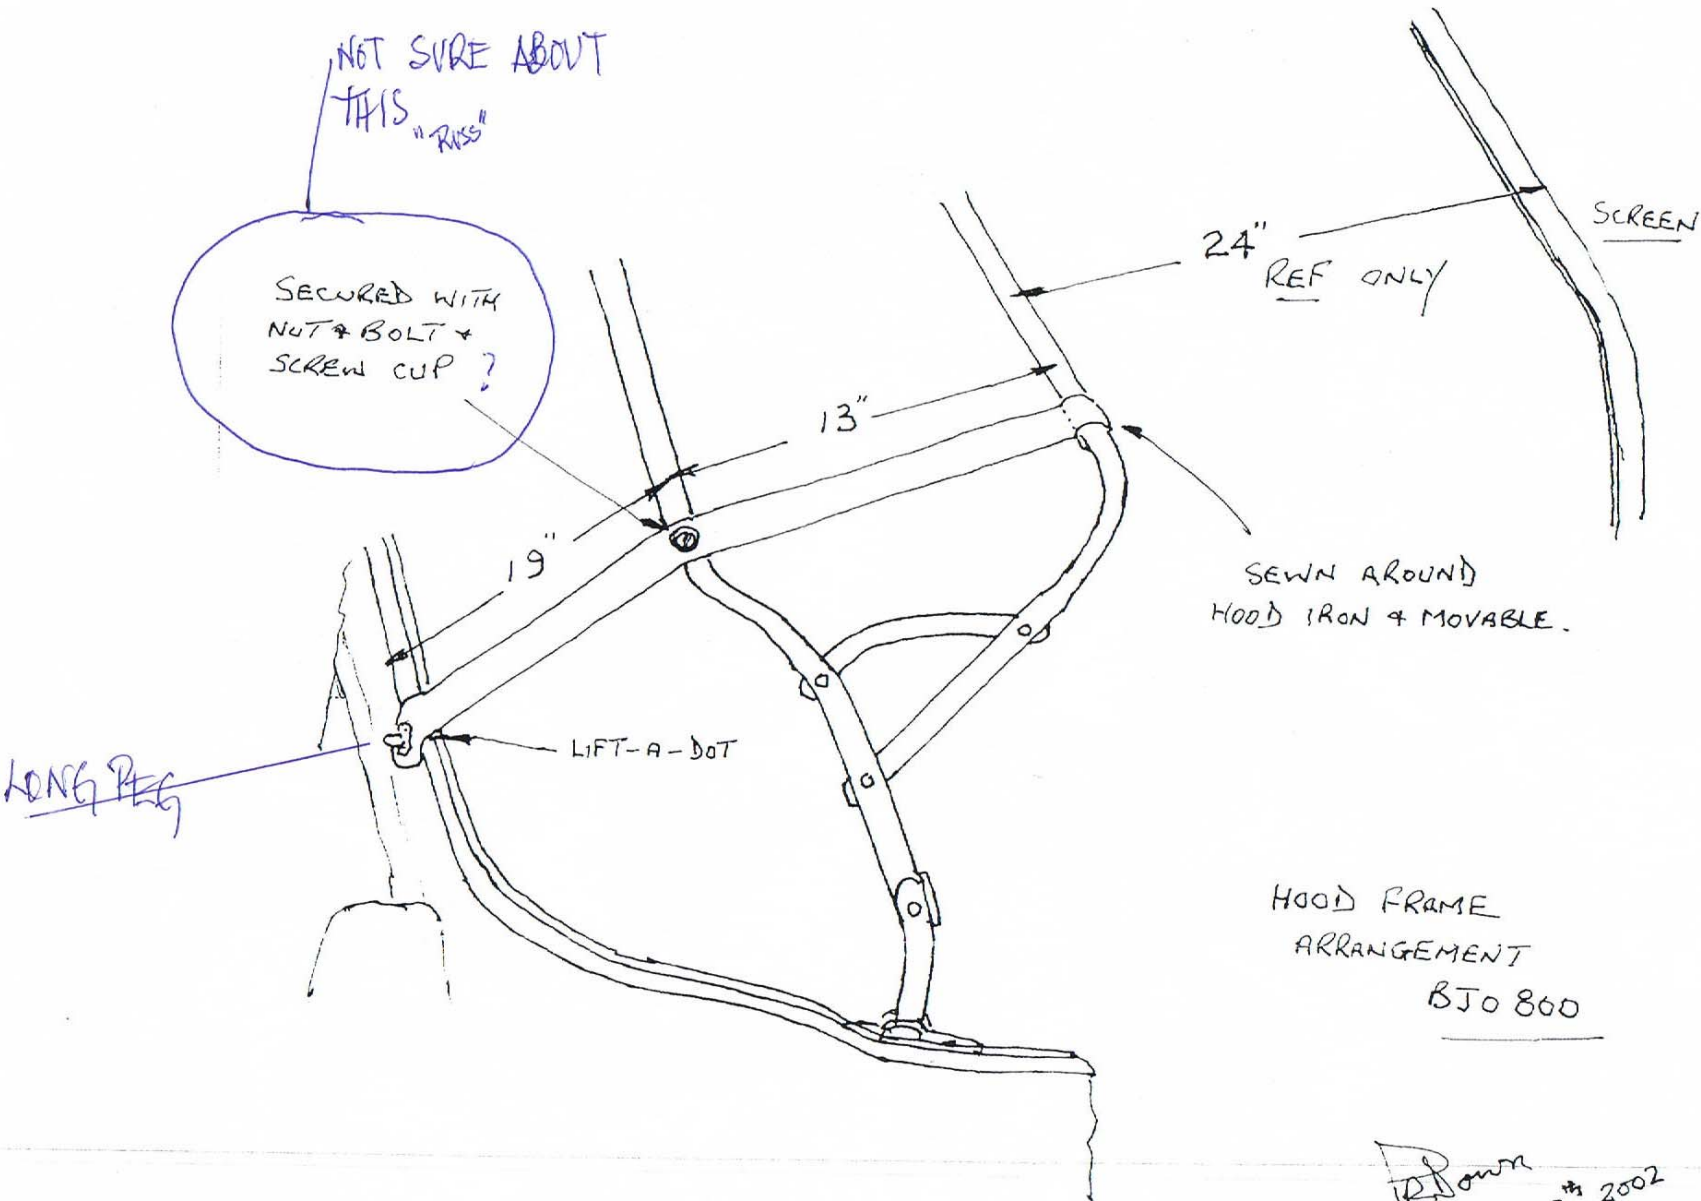 NOT SURE ABOUT
THIS "RUSS"
SECURED WITH
NUT & BOLT &
SCREW CUP ?
24"
REF ONLY
SCREEN
13"
19"
SEWN AROUND
HOOD IRON & MOVABLE.
LIFT-A-DOT
LONG PEG
HOOD FRAME
ARRANGEMENT
BJO 800
2002